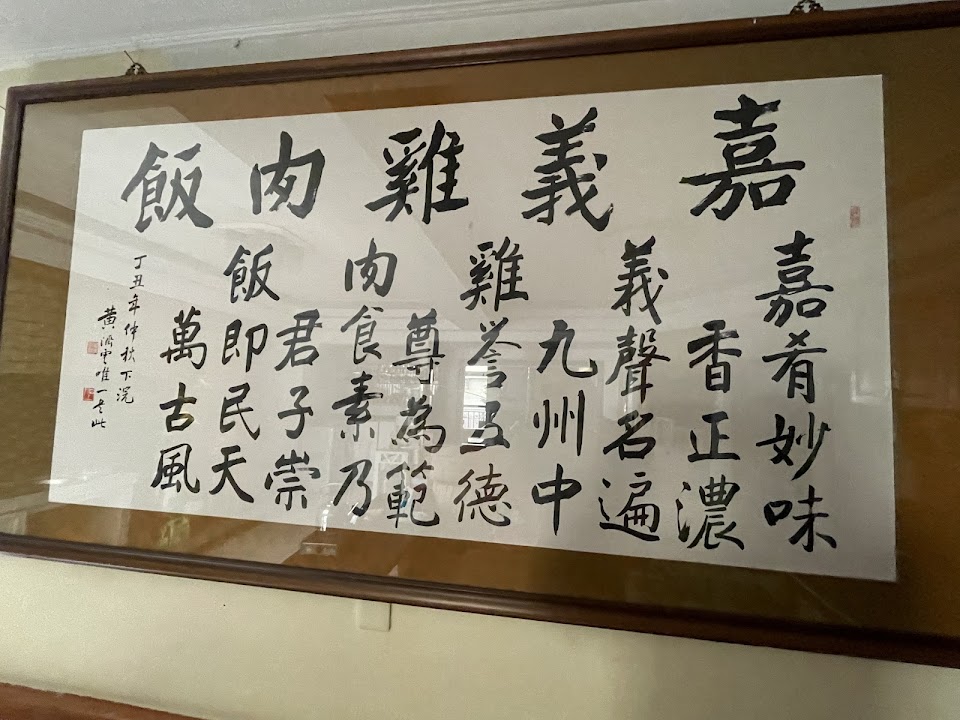 嘉義雞肉飯
嘉肴妙味
香正濃
義聲名遍
九州中
雞譽五德
尊為範
肉食素乃
君子崇
飯即民天
萬古風
丁丑年仲秋下浣
黃雲唯一